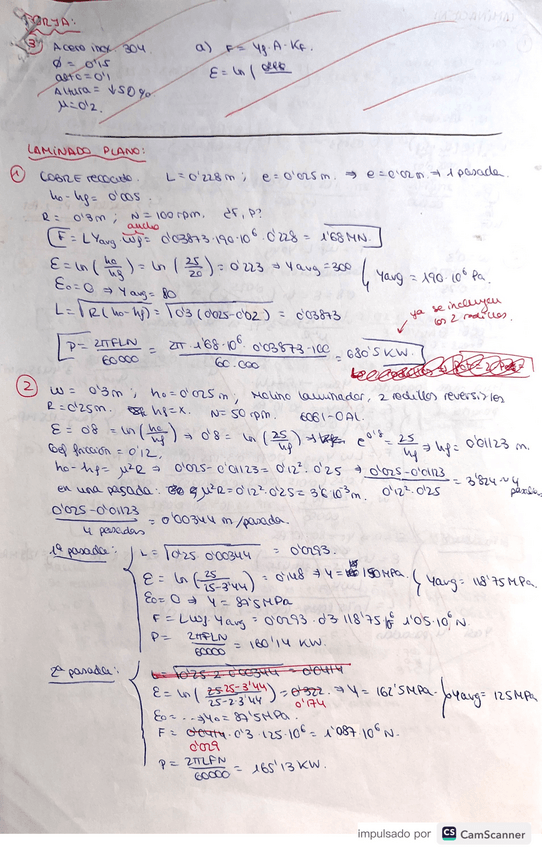 FORJA:
3) Acero inox 304.
Ø = 0'15
Altura = ↓50%
μ = 0'2.
a) F = Yf · A · KF.
ε = ln (
LAMINADO PLANO:
1) COBRE recocido. L = 0'228 m ; e = 0'025 m ⇒ e = 0'02 m ⇒ 1 pasada.
ho - hf = 0'005.
R = 0'3 m ; N = 100 rpm. ¿F, P?
ancho
F = L Yavg wf = 0'03873 · 190 · 10⁶ · 0'228 = 1'68 MN.
ε = ln (ho/hf) = ln (25/20) = 0'223 ⇒ Yavg = 300
ε₀ = 0 ⇒ Yavg = 80
Yavg = 190 · 10⁶ Pa.
L = √R (ho - hf) = √0'3 (0'025 - 0'02) = 0'03873
ya se incluyen los 2 rodillos.
P = 2πFLN/60000 = 2π · 1'68 · 10⁶ · 0'03873 · 100/60.000 = 680'5 KW.
2) W = 0'3 m ; ho = 0'025 m, Molino laminador, 2 rodillos reversibles
R = 0'25 m. hf = x. N = 50 rpm. 6061-O AL.
ε = 0'8 = ln (ho/hf) ⇒ 0'8 = ln (25/hf) ⇒ e^0'8 = 25/hf ⇒ hf = 0'01123 m.
Coef fricción = 0'12,
ho - hf = μ²R ⇒ 0'025 - 0'01123 = 0'12² · 0'25 ⇒ 0'025 - 0'01123/0'12² · 0'25 = 3'824 ~ 4 pasadas
en una pasada. μ²R = 0'12² · 0'25 = 3'6 · 10⁻³ m.
0'025 - 0'01123/4 pasadas = 0'00344 m/pasada.
1ª pasada:
L = √0'25 · 0'00344 = 0'0293.
ε = ln (25/25-3'44) = 0'148 ⇒ Y = 150 MPa.
ε₀ = 0 ⇒ Y = 87'5 MPa
Yavg = 118'75 MPa
F = L wf Yavg = 0'0293 · 0'3 118'75 10⁶ 1'05 · 10⁶ N.
P = 2πFLN/60000 = 160'14 KW.
2ª pasada:
L = √0'25 · 2 · 0'00344 = 0'0414
ε = ln (25-3'44/25-2·3'44) = 0'322 0'174 ⇒ Y = 162'5 MPa.
Yavg = 125 MPa
ε₀ = ... ⇒ Y₀ = 87'5 MPa.
F = 0'0414 0'029 · 0'3 · 125 · 10⁶ = 1'087 · 10⁶ N.
P = 2πLFN/60000 = 165'13 KW.
impulsado por CS CamScanner